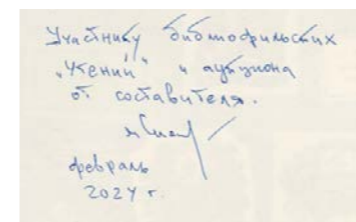 Участнику библиофильских
„Чтений“ и аукциона
от составителя.
февраль
2024 г.